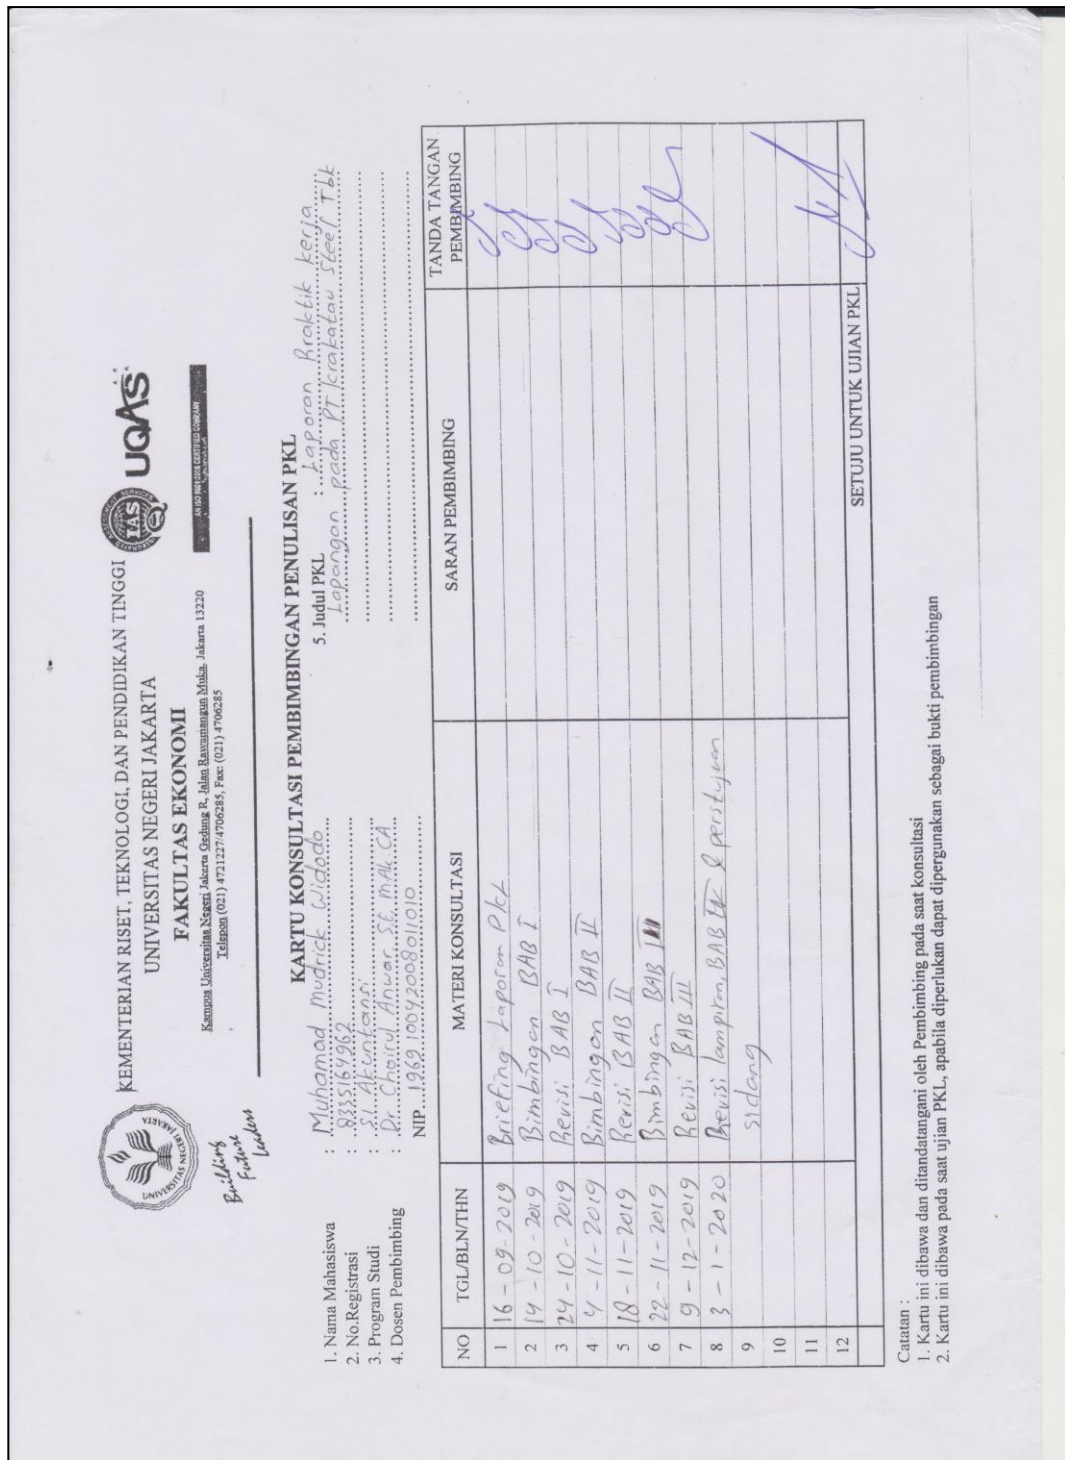 KEMENTERIAN RISET, TEKNOLOGI, DAN PENDIDIKAN TINGGI
UNIVERSITAS NEGERI JAKARTA
FAKULTAS EKONOMI
Kampus Universitas Negeri Jakarta Gedung R, Jalan Rawamangun Muka, Jakarta 13220
Telepon (021) 4721227/4706285, Fax: (021) 4706285
UNIVERSITAS NEGERI JAKARTA
Building
Future
Leaders
IAS
UQAS
AN ISO 9001:2008 CERTIFIED COMPANY
KARTU KONSULTASI PEMBIMBINGAN PENULISAN PKL
1. Nama Mahasiswa : Muhamad Mudrick Widodo
2. No.Registrasi : 8335164962
3. Program Studi : S1 Akuntansi
4. Dosen Pembimbing : Dr Choirul Anwar, S.E, MAk, CA
NIP. 196910042008011010
5. Judul PKL : Laporan Praktik kerja
Lapangan pada PT Krakatau Steel Tbk
NO TGL/BLN/THN MATERI KONSULTASI SARAN PEMBIMBING TANDA TANGAN PEMBIMBING
1 16-09-2019 Briefing Laporan PKL
2 14-10-2019 Bimbingan BAB I
3 24-10-2019 Revisi BAB I
4 4-11-2019 Bimbingan BAB II
5 18-11-2019 Revisi BAB II
6 22-11-2019 Bimbingan BAB III
7 9-12-2019 Revisi BAB III
8 3-1-2020 Revisi lampiran, BAB IV & perstujuan
9 sidang
10
11
12
SETUJU UNTUK UJIAN PKL
Catatan :
1. Kartu ini dibawa dan ditandatangani oleh Pembimbing pada saat konsultasi
2. Kartu ini dibawa pada saat ujian PKL, apabila diperlukan dapat dipergunakan sebagai bukti pembimbingan